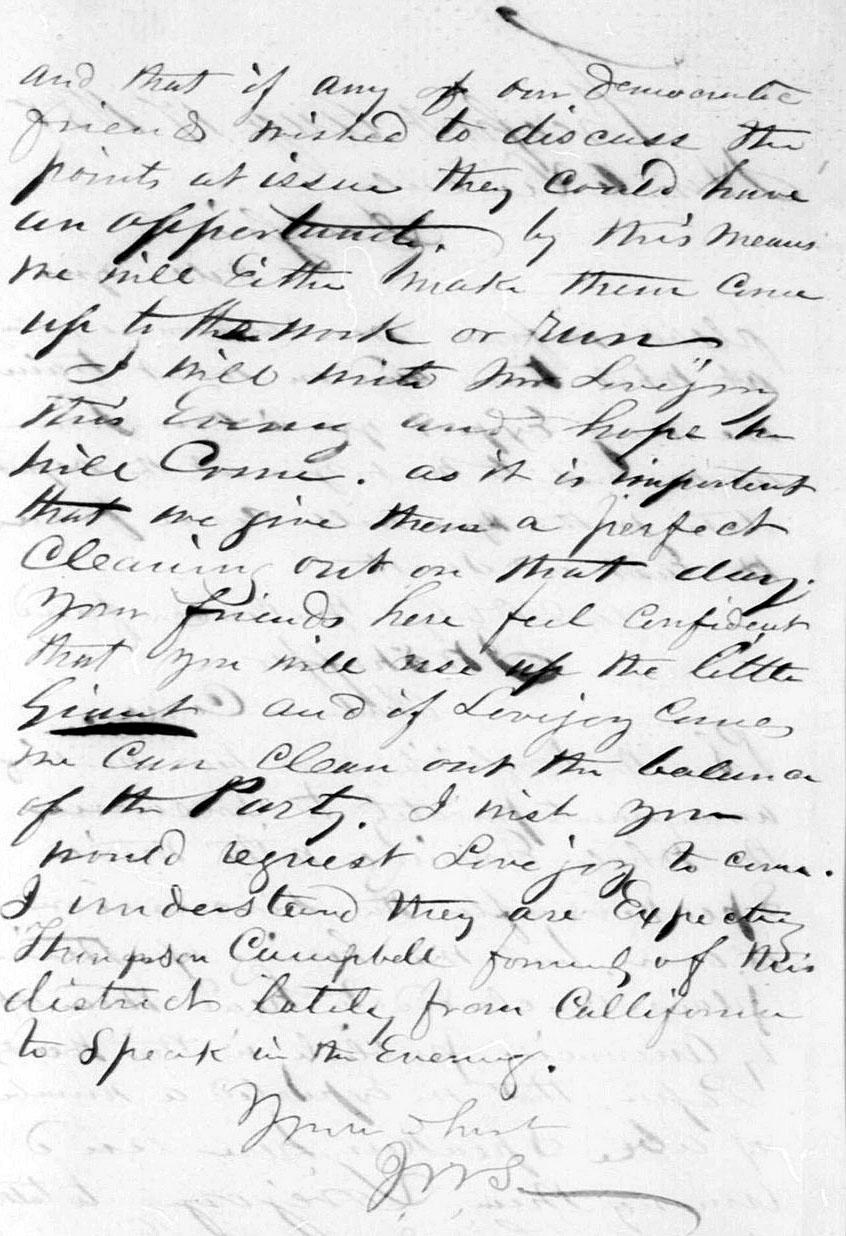 and that if any of our Democratic
friends wished to discuss the
points at issue they could have
an opportunity. by this means
we will Either make them come
up to the work or run
I will write Mr Lovejoy
this Evening and hope he
will Come. as it is important
that we give them a perfect
Cleaning out on that day.
Your friends here feel confident
that you will use up the little
Giant and if Lovejoy comes
we can clean out the balance
of the Party. I wish you
would request Lovejoy to come.
I understand they are Expecting
Thompson Campbell formerly of this
district lately from Callifornia
to Speak in the Evening.
Yours
JWS